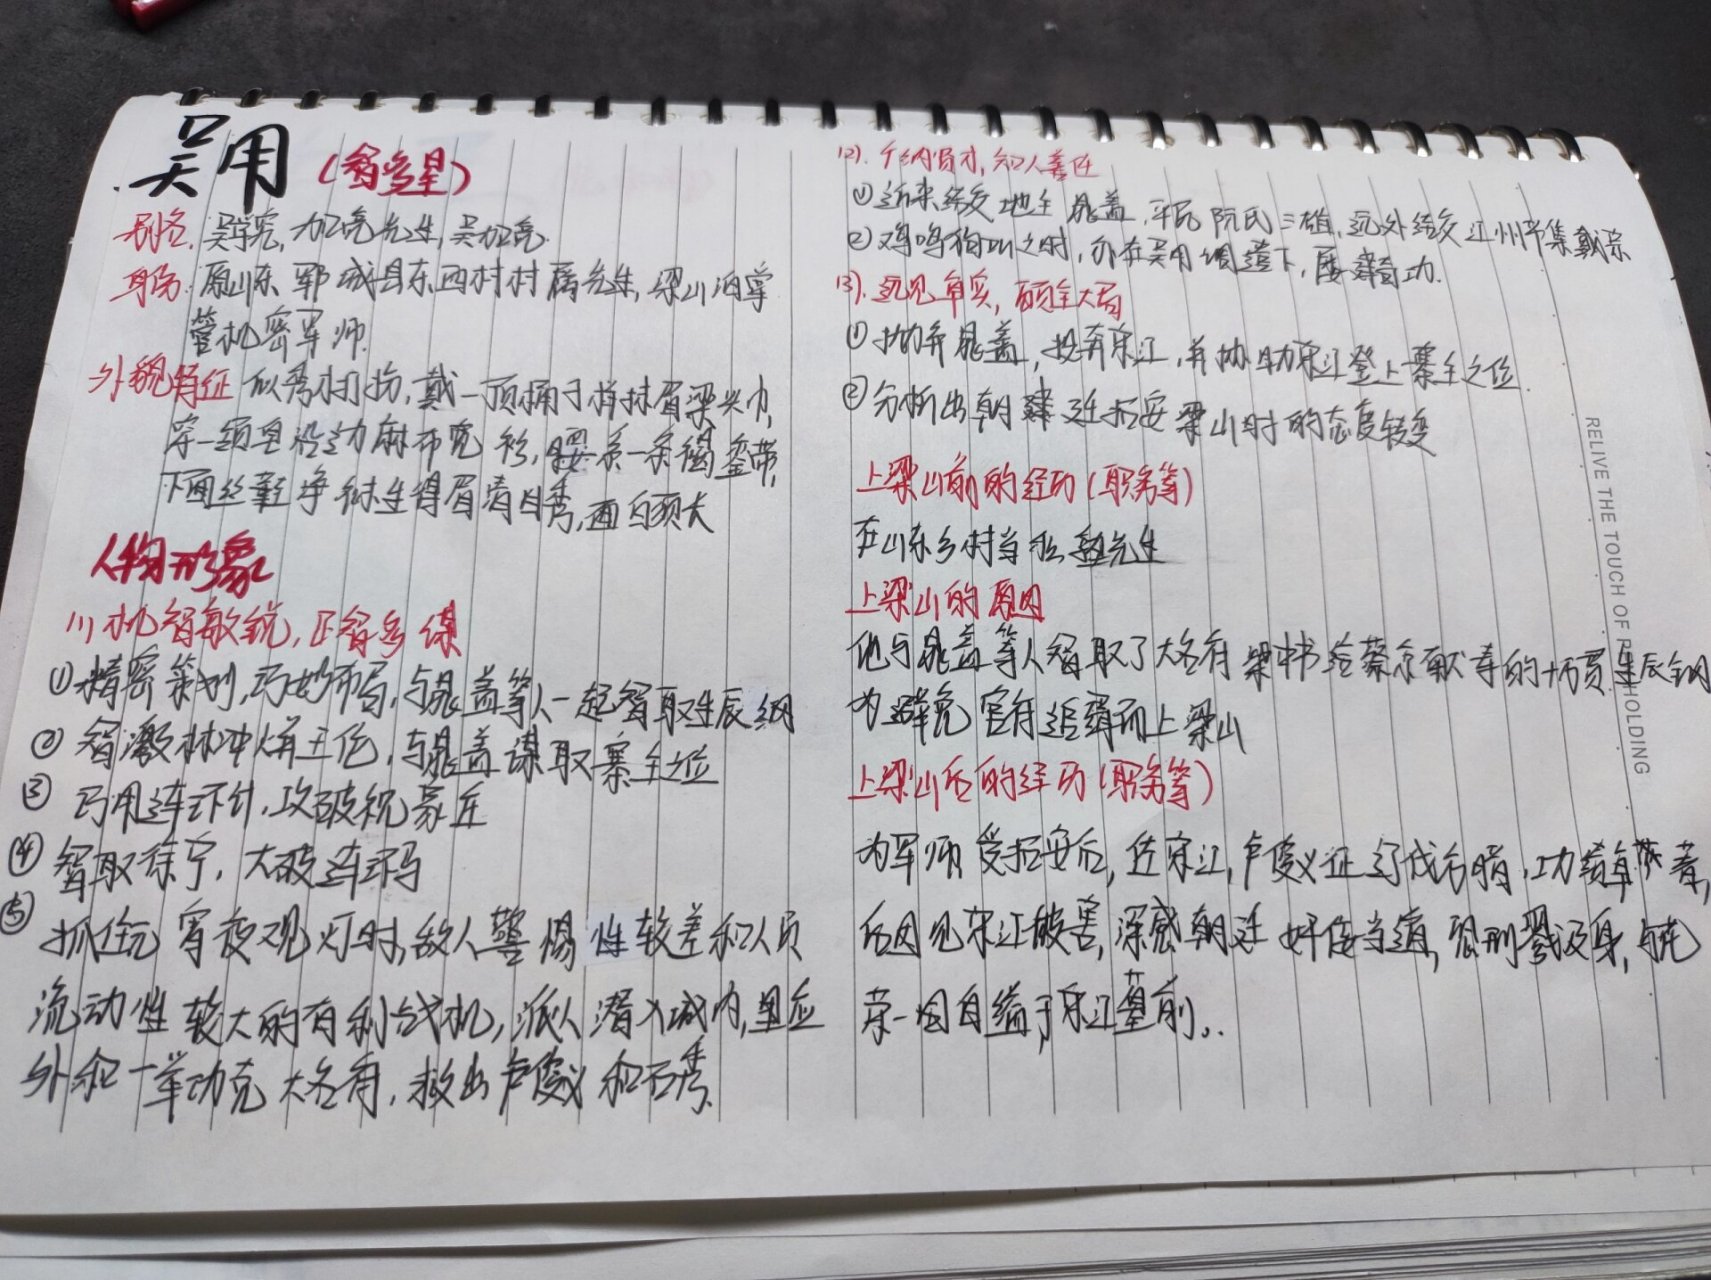 吴用(智多星)
别名 吴学究,加亮先生,吴加亮
身份 原山东 郓城县东西村村 先生,梁山泊掌
管机密军师.
外貌特征 似秀才打扮,戴一顶桶子样抹眉梁头巾,
穿一领皂沿边麻布宽衫,腰系一条 銮带,
下面丝鞋净袜生得眉清目秀,面白须长
人物形象
(1)机智敏锐,足智多谋
①精密策划,巧妙布局,与晁盖等人一起智取生辰纲
②智激林冲火并王伦,与晁盖谋取寨主之位
③巧用连环计,攻破祝家庄
④智取徐宁,大破连环马
⑤抓住元宵夜观灯时,敌人警惕性较差和人员
流动性较大的有利战机,派人潜入城内,里应
外和一举功克大名府,救出卢俊义和石秀.
(2).广纳贤才,知人善任
①近来结交地主晁盖,平民阮氏三雄,远外结交江州节集戴宗
②鸡鸣狗 之时,亦在吴用调遣下,屡建奇功.
(3).远见 实,顾全大局
①抛弃晁盖,投奔宋江,并协助宋江登上寨主之位.
②分析出朝 廷招安梁山时的态度转变
上梁山前的经历(职务等)
在山东乡村当私塾先生
上梁山的原因
他与晁盖等人智取了大名府梁中书给蔡京献寿的十万贯生辰纲
为避免官府追缉而上梁山
上梁山后的经历(职务等)
为军师 受招安后,佐宋江,卢俊义征辽伐方腊,功绩卓著,
后因见宋江被害,深感朝廷奸佞当道,恐刑戮及身,与花
荣一同自缢于宋江墓前。
RELIVE THE TOUCH OF HOLDING